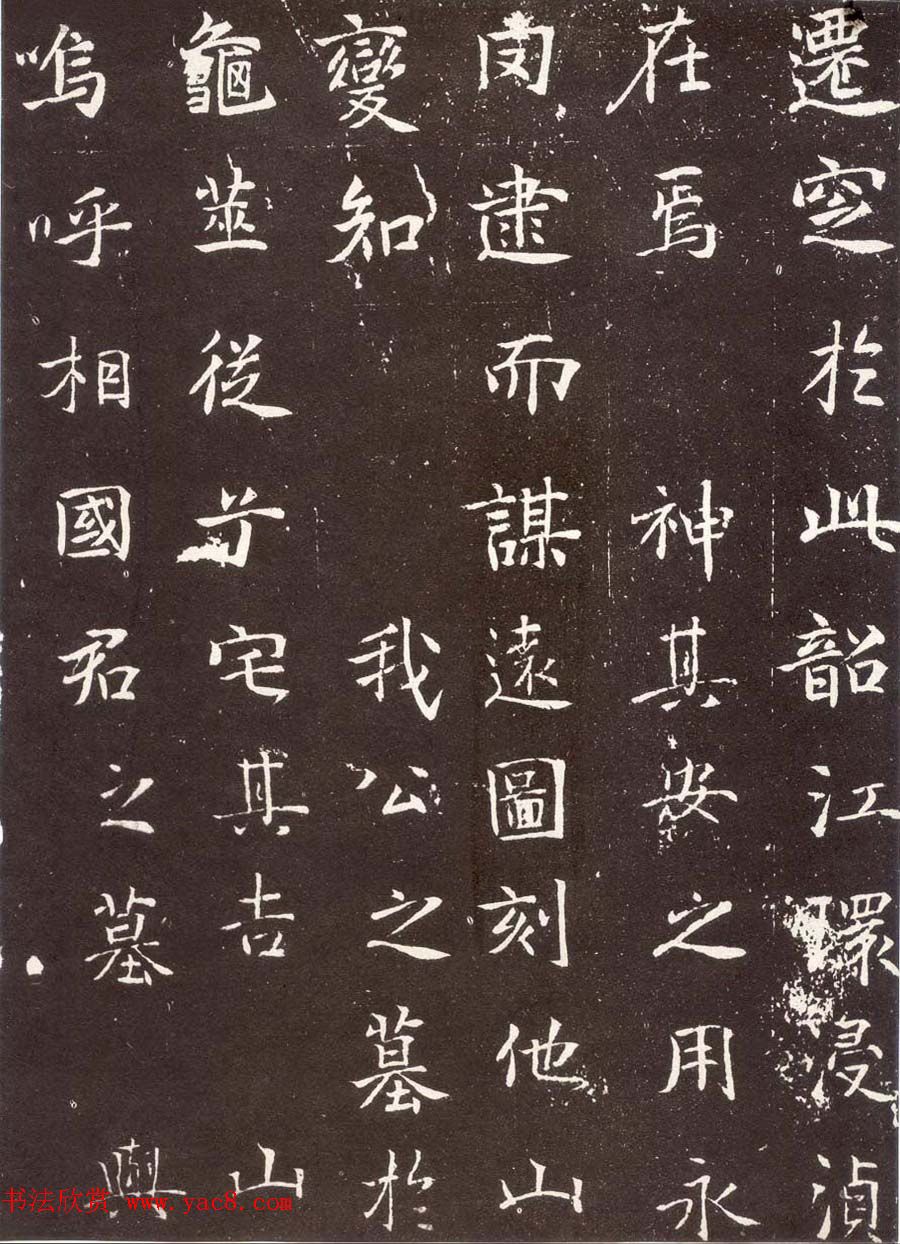 遷窆於此韶江環浸湞
在焉神其安之用永
固逮而謀遠圖刻他山
變知我公之墓於
龜筮從兮宅其吉山
嗚呼相國君之墓與
书法欣赏 www.yac8.com